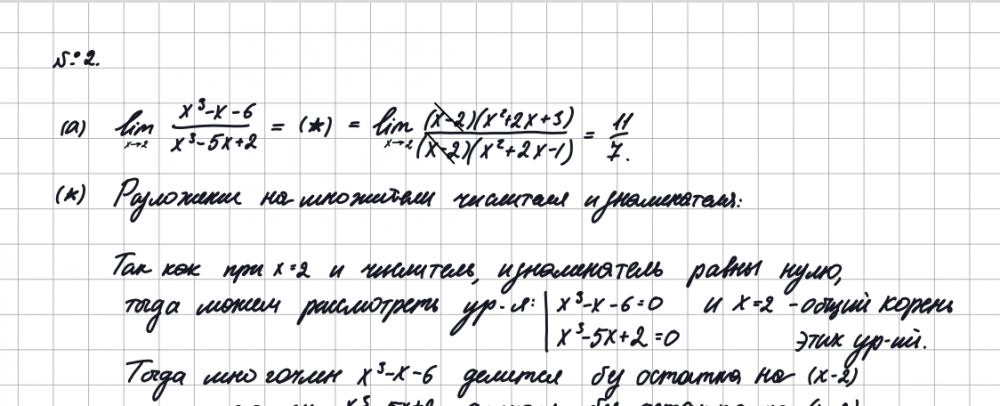 № 2.
(а) lim x→2 (x³-x-6)/(x³-5x+2) = (*) = lim x→2 (x-2)(x²+2x+3)/(x-2)(x²+2x-1) = 11/7.
(*) Разложение на множители числителя и знаменателя:
Так как при x=2 и числитель, и знаменатель равны нулю,
тогда можем рассмотреть ур-я: x³-x-6=0 и x=2 - общий корень
x³-5x+2=0 этих ур-ий.
Тогда многочлен x³-x-6 делится без остатка на (x-2)